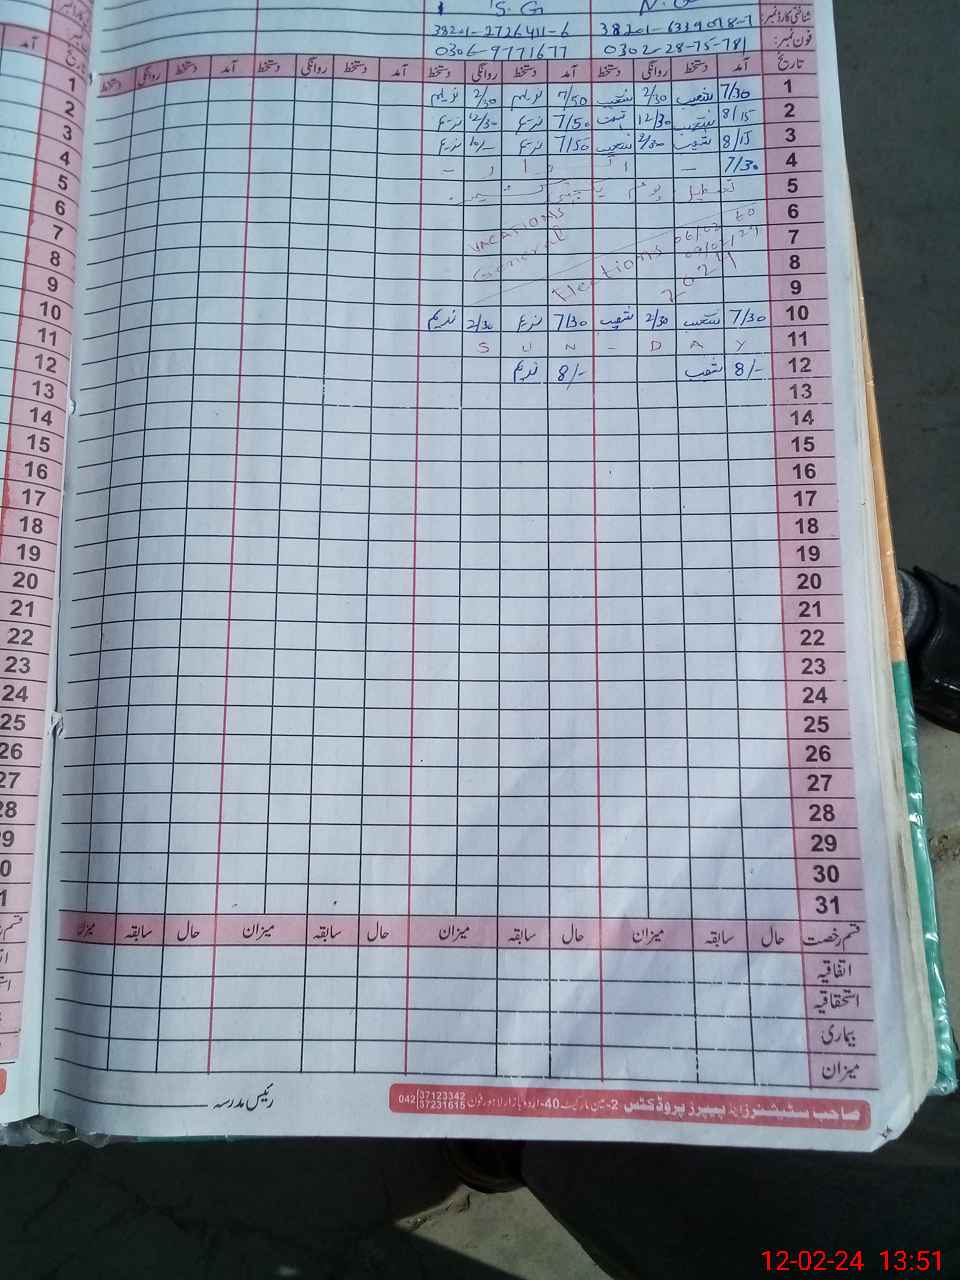 S. G N. G
شناختی کارڈ نمبر: 38201-6339018-7 38201-2726411-6
فون نمبر: 0302-28-75-781 0306-9771677
تاریخ آمد دستخط روانگی دستخط آمد دستخط روانگی دستخط آمد دستخط روانگی دستخط آمد دستخط روانگی دستخط
1 7/30 شعیب 2/30 شعیب 7/50 ندیم 2/30 ندیم
2 8/15 شعیب 12/30 7/50 ندیم 12/30 ندیم
3 8/15 شعیب 2/30 شعیب 7/50 ندیم ندیم
4 7/30
5 تعطیل یوم یکجہتی کشمیر
6 VACATIONS 06/02 to
7 General Elections 09/02/24
8 2024
9
10 7/30 شعیب 2/30 شعیب 7/30 ندیم 2/30 ندیم
11 S U N - D A Y
12 8/- شعیب 8/- ندیم
13
14
15
16
17
18
19
20
21
22
23
24
25
26
27
28
29
30
31
قسم رخصت حال سابقہ میزان حال سابقہ میزان حال سابقہ میزان حال سابقہ میزان
اتفاقیہ
استحقاقیہ
بیماری
میزان
رئیس مدرسہ
صاحب سٹیشنرز اینڈ پیپرز پروڈکٹس 2-مین مارکیٹ-40-اردو بازار لاہور فون 042 37123342 37231615
12-02-24 13:51